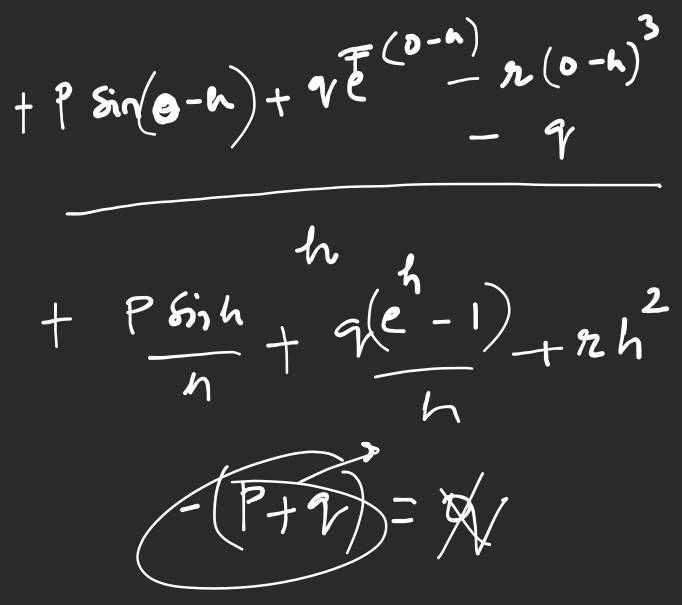 + P sin(0-h) + q e^-(0-h) - r(0-h)^3
- q
h
+ P sin h / h + q(e^h - 1) / h + r h^2
-(P+q) =